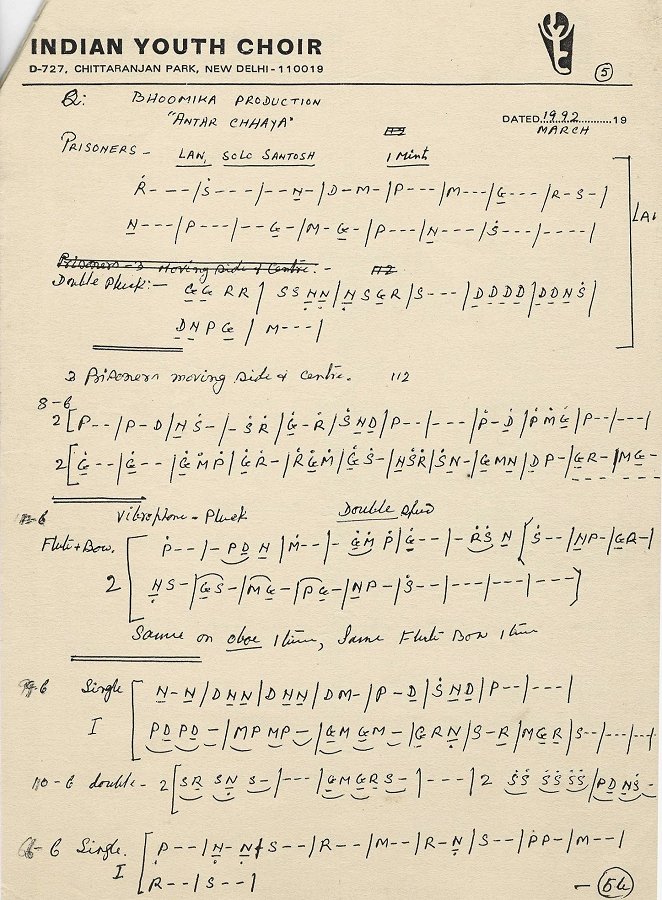 INDIAN YOUTH CHOIR
D-727, CHITTARANJAN PARK, NEW DELHI-110019
5
Q: BHOOMIKA PRODUCTION
"ANTAR CHHAYA"
DATED 1992 19
MARCH
PRISONERS - LAN, SOLO SANTOSH 1 Mint
Ṙ - - - / Ṡ - - - / - - N - / D - M - / P - - - / M - - - / G - - - / R - S - /
N - - - / P - - - / - - G - / M - G - / P - - - / N - - - / Ṡ - - - / - - - - /
Prisoners - 3 moving side & Centre. - 112
Double Pluck: - G G R R / S S N N / N S G R / S - - - / D D D D / D D N Ṡ /
D N P G / M - - - /
3 Prisoners moving side & centre. 112
8 - 6
2 [ P - - / P - D / N Ṡ - / - Ṡ Ṙ / Ġ - Ṙ / Ṡ N D / P - - / - - - / P - D / P M G / P - - / - - - /
2 [ Ġ - - / Ġ - - / Ġ Ṁ Ṗ / Ġ Ṙ - / Ṙ Ġ Ṁ / Ġ Ṡ - / N Ṡ Ṙ / Ṡ N - / G M N / D P - / G R - / M G -
- 6 Vibrophone - Pluck Double Spd
Flute + Bow. Ṗ - - / - P D N / Ṁ - - / - Ġ Ṁ Ṗ / Ġ - - / - Ṙ Ṡ N [ Ṡ - - / N P - / G R - /
2 N S - / G S - / M G - / P G - / N P - / Ṡ - - / - - - / - - - / - - - ]
Same on oboe 1 time, Same Flute Bow 1 time
- 6 Single N - N / D N N / D N N / D M - / P - D / Ṡ N D / P - - / - - - /
I P D P D - / M P M P - / G M G M - / G R N / S - R / M G R / S - - / - - - / - - - /
110 - 6 double - 2 [ S R S N S - / - - - / G M G R S - / - - - / 2 Ṡ Ṡ Ṡ Ṡ Ṡ Ṡ / P D N Ṡ -
- 6 Single. P - - / N - N / S - - / R - - / M - - / R - N / S - - / P P - / M - - /
I R - - / S - - /